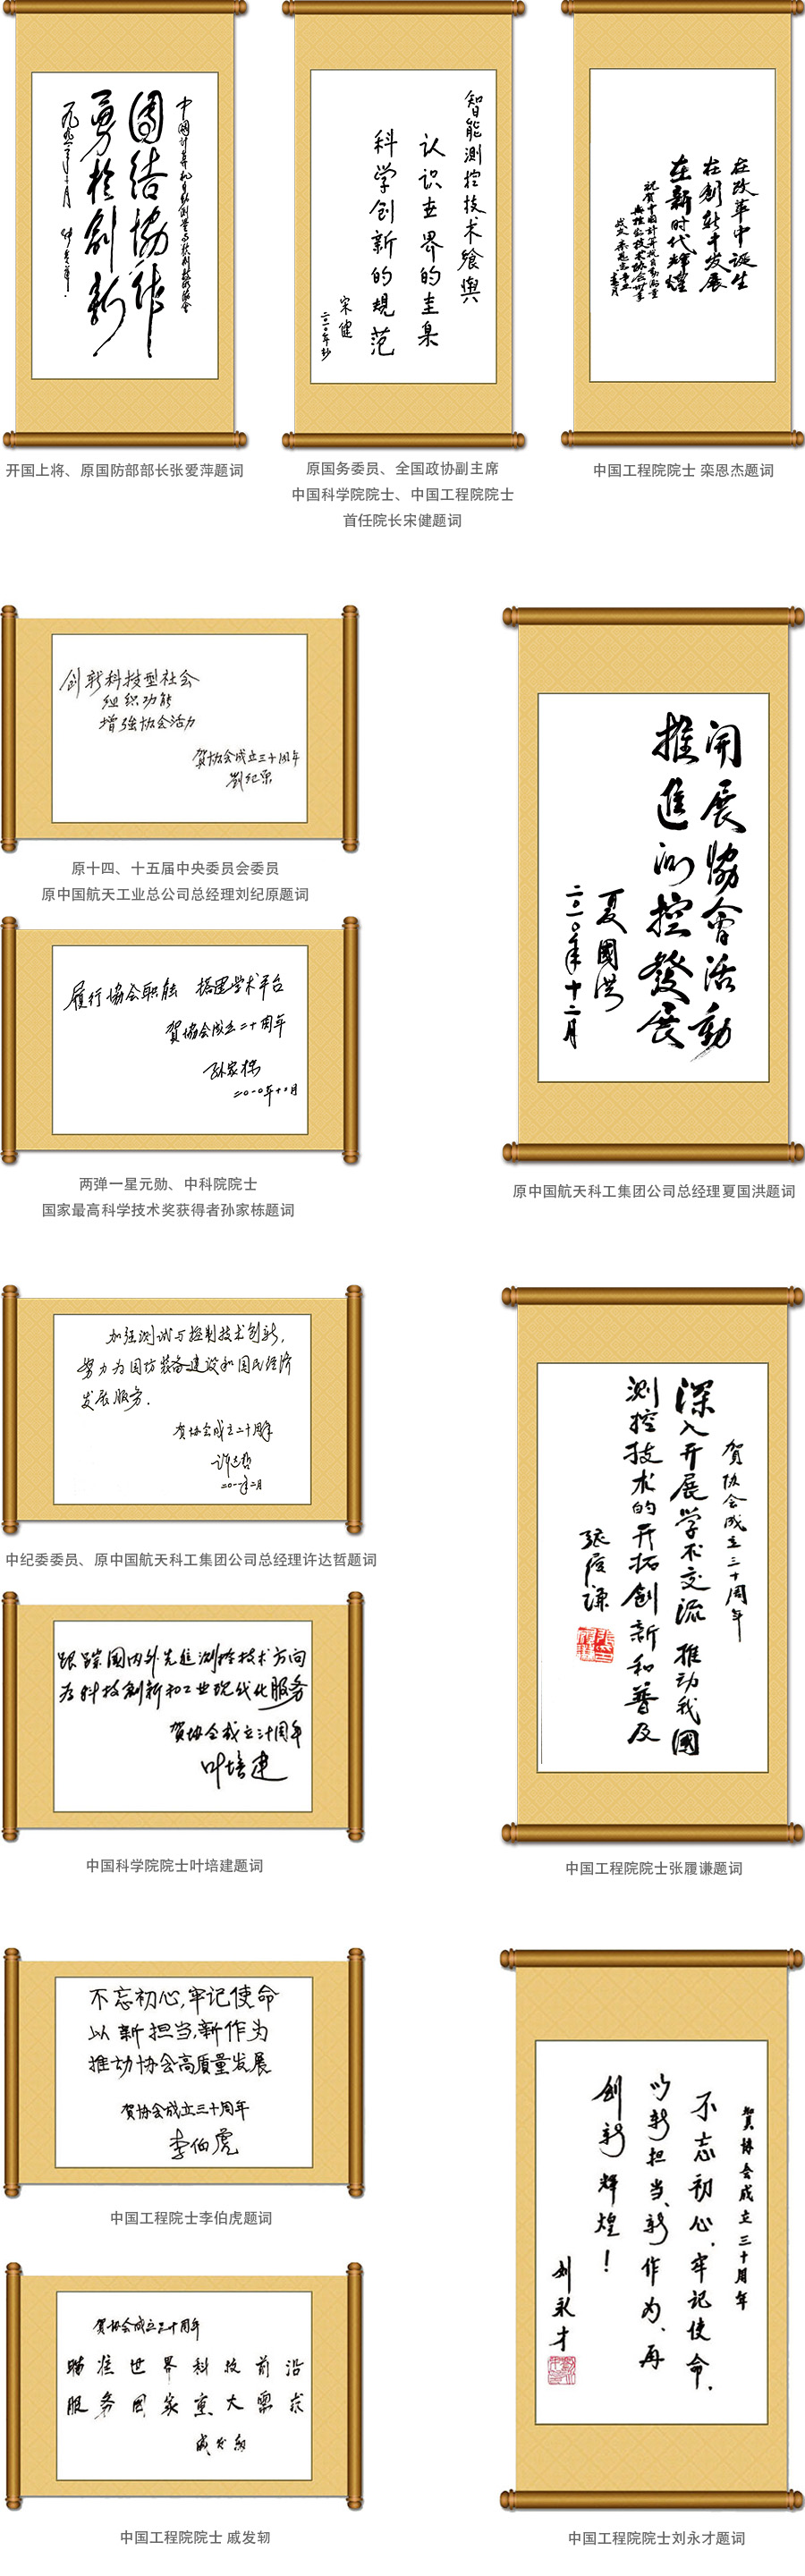 中国计算机自动测量与控制技术协会
团结协作
勇于创新
一九九二年十月
开国上将、原国防部部长张爱萍题词
智能测控技术
认识世界的
科学创新的规范
宋健
二〇一〇年
原国务委员、全国政协副主席
中国科学院院士、中国工程院院士
首任院长宋健题词
在改革中诞生
在创新中发展
在新时代辉煌
中国工程院院士 栾恩杰题词
创新科技型社会
组织功能
增强协会活力
贺协会成立三十周年
劉纪原
原十四、十五届中央委员会委员
原中国航天工业总公司总经理刘纪原题词
開展協會活動
推進测控發展
夏國洪
二〇一〇年十二月
原中国航天科工集团公司总经理夏国洪题词
履行協会职能 搭建学术平台
贺協会成立二十周年
孙家栋
二〇一〇年十二月
两弹一星元勋、中科院院士
国家最高科学技术奖获得者孙家栋题词
加强测试与控制技术创新,
努力为国防装备建设和国民经济
发展服务.
贺协会成立二十周年
许达哲
二〇一一年二月
中纪委委员、原中国航天科工集团公司总经理许达哲题词
贺协会成立三十周年
深入开展学术交流 推动我國
测控技术的开拓创新和普及
张履谦
中国工程院院士张履谦题词
跟踪国内外先进测控技术方向
为科技創新和工业现代化服务
贺协会成立三十周年
叶培建
中国科学院院士叶培建题词
不忘初心,牢记使命
以新担当,新作为
推动协会高质量发展
贺协会成立三十周年
李伯虎
中国工程院士李伯虎题词
贺协会成立三十周年
不忘初心,牢记使命,
以新担当、新作为、再
创新辉煌!
刘永才
中国工程院院士刘永才题词
贺协会成立三十周年
瞄准世界科技前沿
服务国家重大需求
戚发轫
中国工程院院士 戚发轫